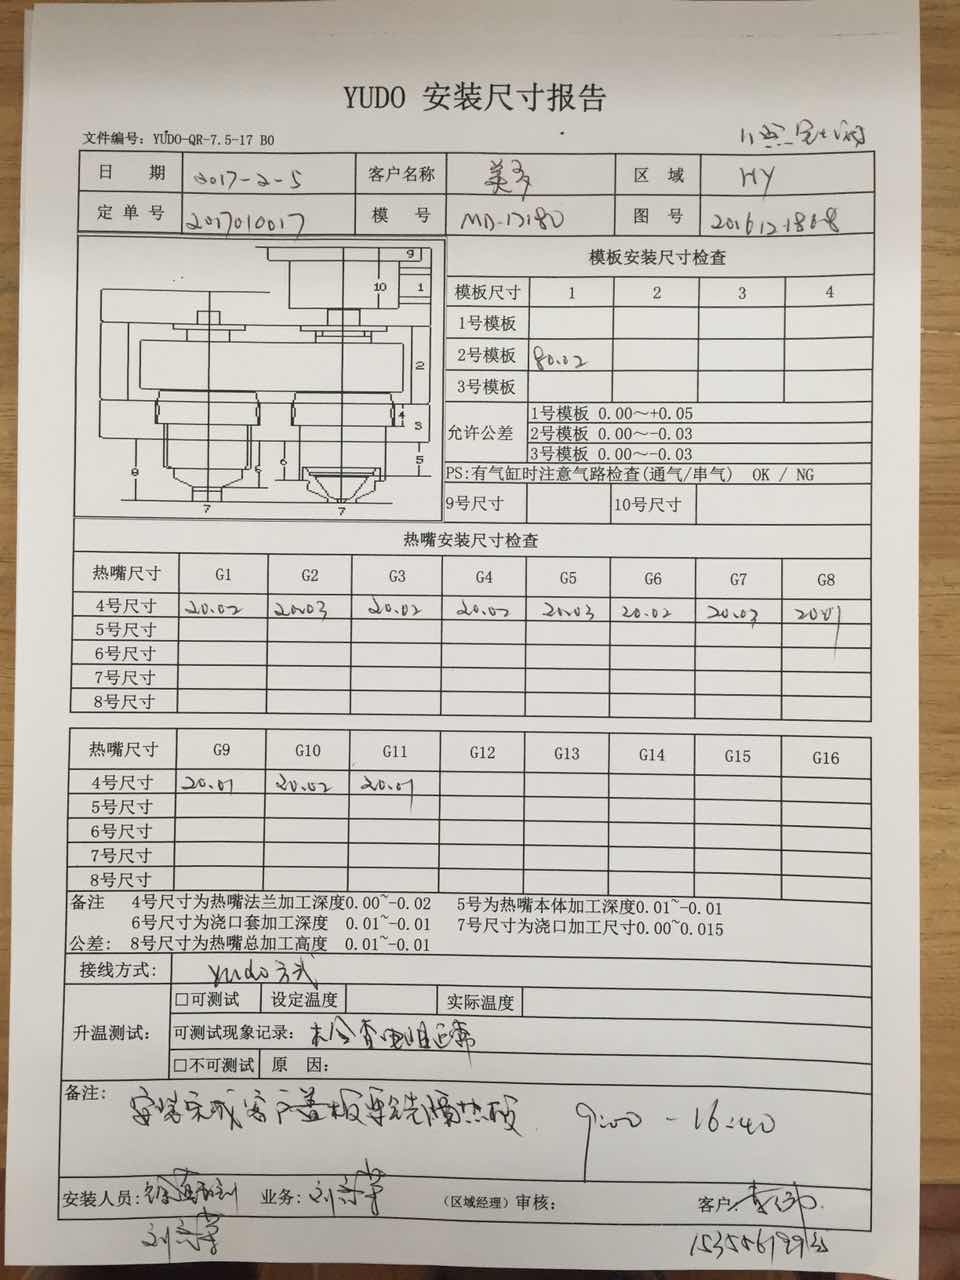 YUDO 安装尺寸报告
文件编号: YUDO-QR-7.5-17 B0
日 期 2017-2-5 客户名称 美多 区 域 HY
定单号 2017010017 模 号 MD-17180 图 号
9
10 1
2
4 3
5
9 5 6
7 7
模板安装尺寸检查
模板尺寸 1 2 3 4
1号模板
2号模板 80.02
3号模板
允许公差
1号模板 0.00～+0.05
2号模板 0.00～-0.03
3号模板 0.00～-0.03
PS:有气缸时注意气路检查(通气/串气) OK / NG
9号尺寸 10号尺寸
热嘴安装尺寸检查
热嘴尺寸 G1 G2 G3 G4 G5 G6 G7 G8
4号尺寸 20.02 20.03 20.02 20.02 20.03 20.02 20.03 20.01
5号尺寸
6号尺寸
7号尺寸
8号尺寸
热嘴尺寸 G9 G10 G11 G12 G13 G14 G15 G16
4号尺寸 20.01 20.02 20.01
5号尺寸
6号尺寸
7号尺寸
8号尺寸
备注 4号尺寸为热嘴法兰加工深度0.00~-0.02 5号为热嘴本体加工深度0.01~-0.01
6号尺寸为浇口套加工深度 0.01~-0.01 7号尺寸为浇口加工尺寸0.00~0.015
公差: 8号尺寸为热嘴总加工高度 0.01~-0.01
接线方式: Yudo方式
□可测试 设定温度 实际温度
升温测试: 可测试现象记录: 检查电阻正常
□不可测试 原 因:
备注: 安装完成 客户盖板要铣隔热板 9:00 - 16:40
安装人员: 业务: (区域经理)审核: 客户: